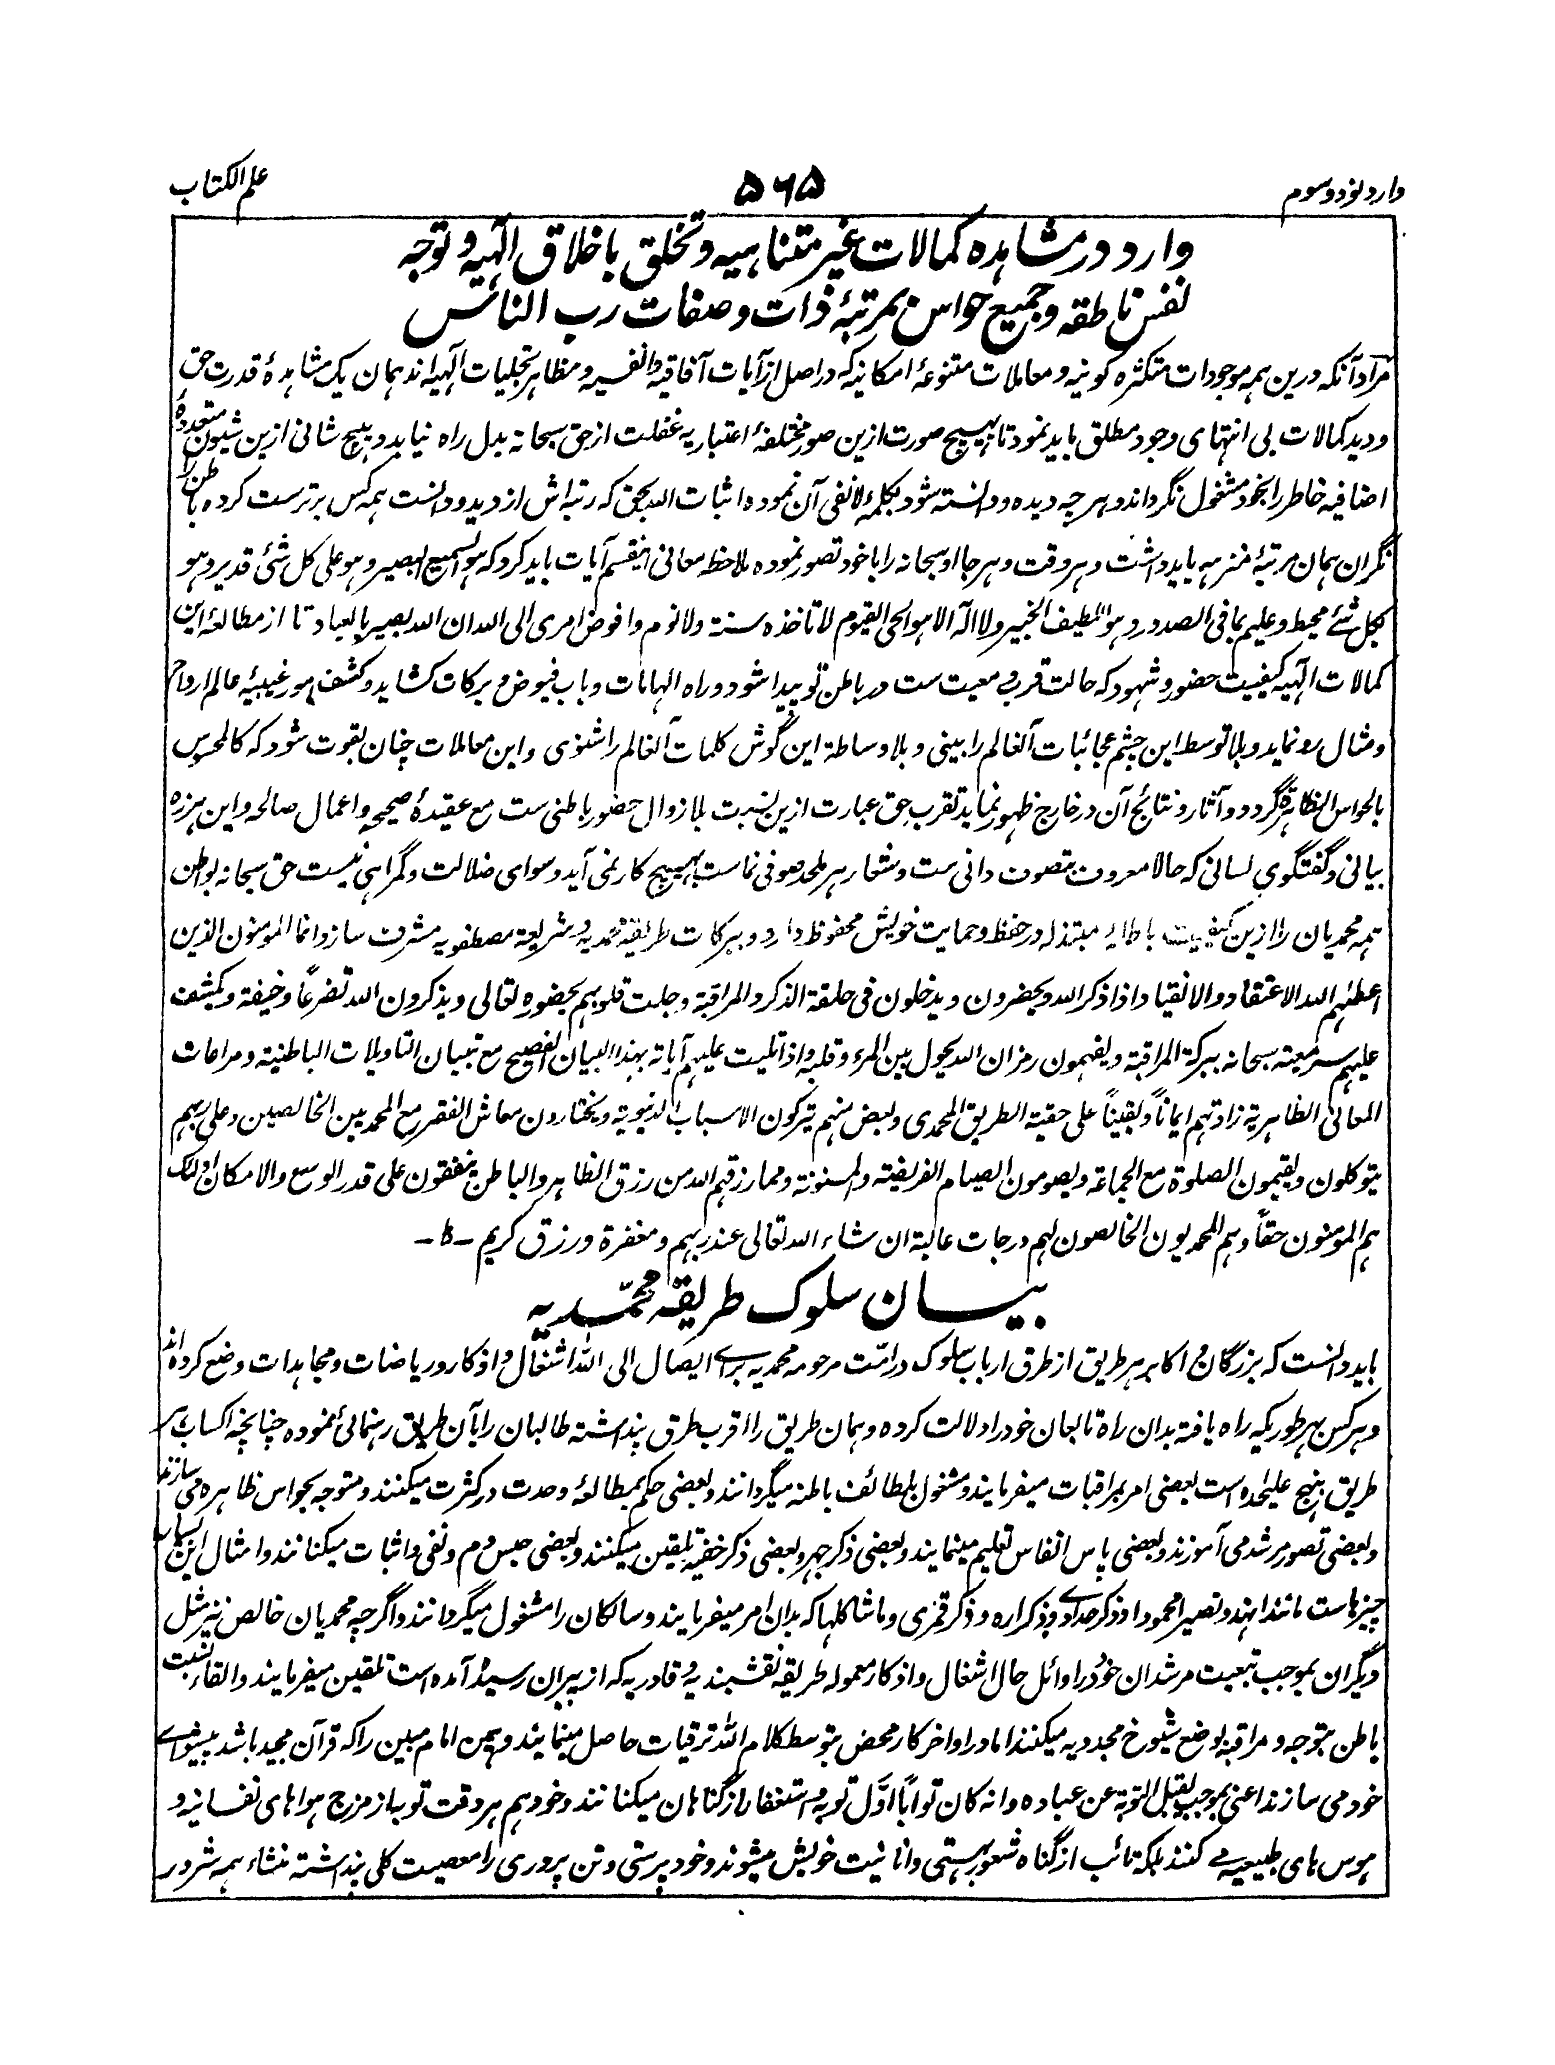 وارد نود و سوم ۵۶۵ علم الکتاب
وارد در مشاهده کمالات غیر متناهیه و تخلق باخلاق الٰهیه و توجه
نفس ناطقه و جمیع حواس بمرتبۂ ذات و صفات رب الناس
مراد آنکه درین همه موجودات متکثره کونیه و معاملات متنوعۂ امکانیه که در اصل از آیات آفاقیه و انفسیه و مظاهر تجلیات الٰهیه اند همان یک مشاهدۂ قدرت حق
و دید کمالات بی انتهای وجود مطلق باید نمود تا بهیچ صورت ازین صور مختلفۂ اعتباریه غفلت از حق سبحانه بدل راه نیابد و هیچ شانی ازین شیون متعددۂ
اضافیه خاطر را بخود مشغول نگرداند و هر چه دیده و دانسته شود بکلمۂ لا نفی آن نموده اثبات اللہ بحق که رتبه اش از دید و دانست همه کس برترست کرده باطن را
نگران همان مرتبۂ منزهه باید داشت و هر وقت و هر جا او سبحانه را با خود تصور نموده ملاحظه معانی اینقسم آیات باید کرد که هو السمیع البصیر و هو علی کل شئ قدیر و هو
بکل شئے محیط و علیم بما فی الصدور و هو اللطیف الخبیر و لا اله الا هو الحی القیوم لا تاخذه سنة ولا نوم و افوض امری الی اللہ ان اللہ بصیر بالعباد تا از مطالعۂ این
کمالات الٰهیه کیفیت حضور و شهود که حالت قرب و معیت ست در باطن تو پیدا شود و راه الهامات و باب فیوض و برکات کشاید و کشف امور غیبیۂ عالم ارواح
و مثال رو نماید و بلا توسط این چشم عجائبات آنعالم را بینی و بلا وساطة این گوش کلمات آنعالم را شنوی و این معاملات چنان بقوت شود که کالمحسوس
بالحواس الظاهرة گردد و آثار و نتائج آن در خارج ظهور نماید تقرب حق عبارت ازین نسبت بلا زوال حضور باطنی ست مع عقیدۂ صحیحه و اعمال صالحه و این هرزه
بیانی و گفتگوی لسانی که حالا معروف بتصوف دانی ست و شعار هر ملحد صوفی نماست بهیچ کار نمی آید و سوای ضلالت و گمراهی نیست حق سبحانه بواطن
همه محمدیان را ازین کیفیت مبتذله در حفظ و حمایت خویش محفوظ دارد و ببرکات طریقۂ محمدیه و شریعة مصطفویه مشرف سازد انما المؤمنون الذین
اعطٰهم اللہ الاعتقاد و الانقیاد اذا ذکر اللہ و یحضرون و یدخلون فی حلقة الذکر و المراقبة وجلت قلوبهم بحضوره تعالی و یذکرون اللہ تضرعاً و خیفة و یکشف
علیهم سر معیته سبحانه ببرکة المراقبة و یفهمون رمز ان اللہ یحول بین المرء و قلبه و اذا تلیت علیهم آیاته بهذا البیان الفصیح مع تبیان التاویلات الباطنیة و مراعات
المعانی الظاهریة زادتهم ایماناً و یقیناً علی حقیة الطریق المحمدی و بعض منهم یترکون الاسباب الدنیویة و یختارون معاش الفقر مع المحمدیین الخالصین و علی ربهم
یتوکلون و یقیمون الصلوة مع الجماعة و یصومون الصیام الفریضة و المسنونة و مما رزقهم اللہ من رزق الظاهر و الباطن ینفقون علی قدر الوسع و الامکان اولئک
هم المؤمنون حقاً و هم المحمدیون الخالصون لهم درجات عالیة ان شاء اللہ تعالی عند ربهم و مغفرة و رزق کریم
بیان سلوک طریقه محمّدیه
باید دانست که بزرگان و اکابر هر طریق از طرق ارباب سلوک در امت مرحومه محمدیه برای ایصال الی اللہ اشغال و اذکار و ریاضات و مجاهدات وضع کرده اند
و هر کس بهر طوریکه راه یافته بدان راه تابعان خود را دلالت کرده و همان طریق را اقرب طرق پنداشته طالبان را بآن طریق رهنمائی نموده چنانچه اکساب هر
طریق بنهج علیٰحده است بعضی امر بمراقبات میفرمایند و مشغول بلطائف باطنه میگردانند و بعضی حکم بمطالعۂ وحدت در کثرت میکنند و متوجه بحواس ظاهره می سازند
و بعضی تصور مرشد می آموزند و بعضی پاس انفاس تعلیم مینمایند و بعضی ذکر جهر و بعضی ذکر خفیه تلقین میکنند و بعضی حبس دم و نفی و اثبات میکنانند و امثال این
چیزهاست مانند انهد و نصیرا محمودا و ذکر حدادی و ذکر اره و ذکر قمری و ماشاکلها که بدان امر میفرمایند و سالکان را مشغول میگردانند و اگرچه محمدیان خالص نیز مثل
دیگران بموجب تبعیت مرشدان خود در اوائل حال اشغال و اذکار معموله طریقه نقشبندیه و قادریه که از پیران رسیده آمده است تلقین میفرمایند و القاء نسبت
باطن بتوجه و مراقبه بوضع شیوخ مجددیه میکنند اما در اواخر کار محض بتوسط کلام اللہ ترقیات حاصل مینمایند و همین امام مبین را که قرآن مجید باشد پیشوای
خود می سازند اعنی بموجب یقبل التوبة عن عباده و انه کان تواباً اوّل توبه و استغفار از گناهان میکنانند و خود هم هر وقت توبه از مزج هواهای نفسانیه و
هوس های طبیعیه می کنند بلکه تائب از گناه شعور هستی و انانیت خویش میشوند و خود پرستی و تن پروری را معصیت کلی پنداشته منشاء همه شر در